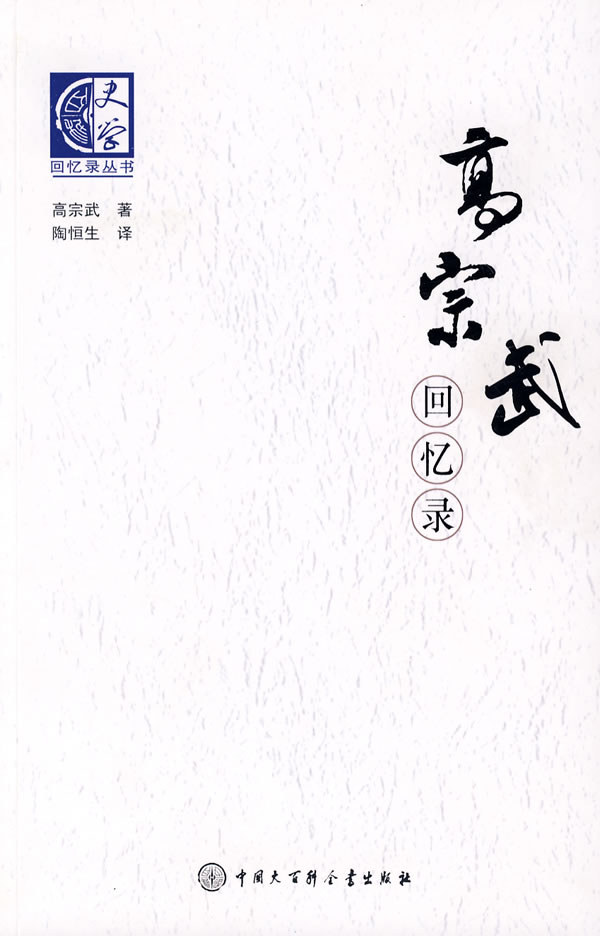 史学
回忆录丛书
高宗武 著
陶恒生 译
高宗武
回忆录
中国大百科全书出版社